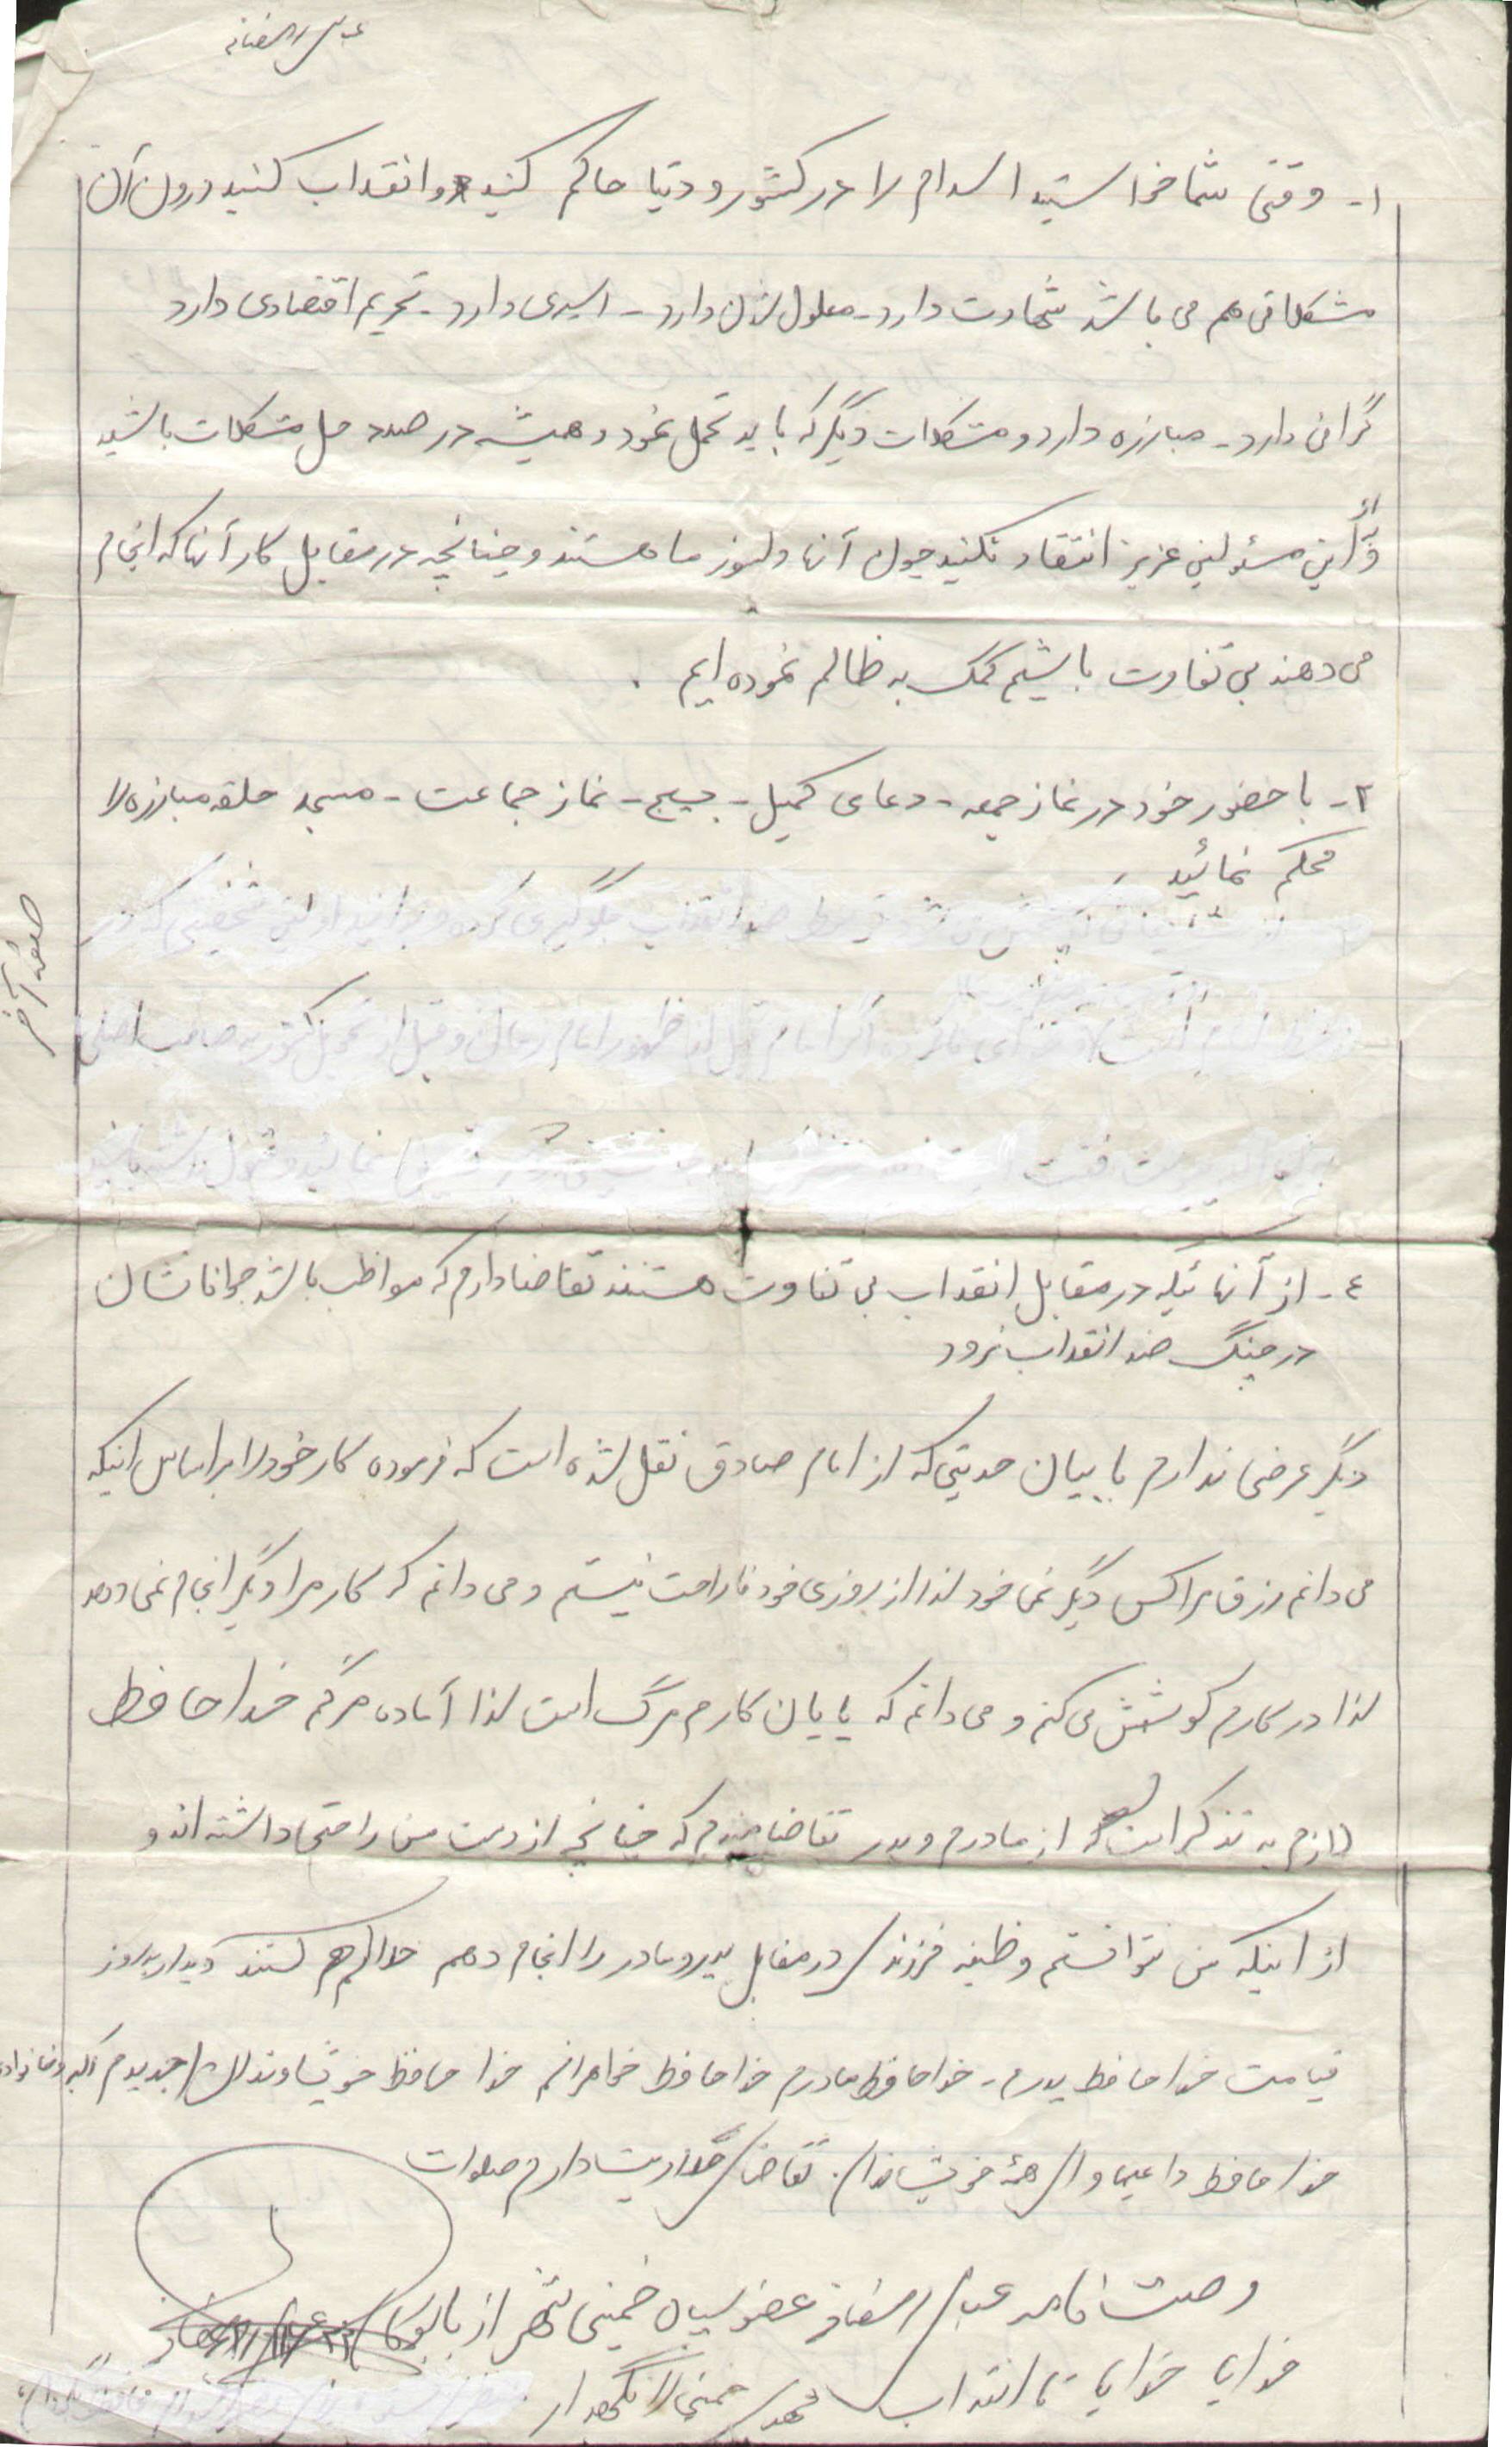 عباس رمضانی
۱- وقتی شما خواستید اسلام را در کشور و دنیا حاکم کنید و انقلاب کنید درون آن
مشکلاتی هم می باشد شهادت دارد - معلول شدن دارد - اسیری دارد - تحریم اقتصادی دارد
گرانی دارد - مبارزه دارد و مشکلات دیگر که باید تحمل نمود و همیشه در صدد حل مشکلات باشید
مسئولین عزیز انتقاد نکنید چون آنها دلسوز ما هستند و چنانچه در مقابل کار آنها که انجام
می دهند بی تفاوت باشیم کمک به ظالم نموده ایم .
۲- با حضور خود در نماز جمعه - دعای کمیل - بسیج - نماز جماعت - مسجد حلقه مبارزه را
محکم نمائید
ضد انقلاب جلوگیری کرده
اگر امام قبل از ظهور امام زمان و قبل از تحویل کشور به صاحب اصلی
صفحه آخر
٤- از آنهائیکه در مقابل انقلاب بی تفاوت هستند تقاضا دارم که مواظب باشد جوانانشان
در چنگ ضد انقلاب نرود
دیگر عرضی ندارم با بیان حدیثی که از امام صادق نقل شده است که فرموده کار خود را براساس اینکه
می دانم رزق مرا کس دیگر نمی خورد لذا از روزی خود ناراحت نیستم و می دانم که کار مرا دیگر انجام نمی دهد
لذا در کارم کوشش می کنم و می دانم که پایان کارم مرگ است لذا آماده مرگم خداحافظ
لازم به تذکر است که از مادرم و پدر تقاضا مندم که چنانچه از دست من ناراحتی داشته اند و
از اینکه من نتوانستم وظیفه فرزندی در مقابل پدر و مادر را انجام دهم حلالم کنند دیدار بروز
قیامت خداحافظ پدرم - خداحافظ مادرم خداحافظ خواهرانم خداحافظ خویشاوندان جدیدم اکبر و خانواده
خداحافظ و از همه خویشاوندان تقاضای حلالیت دارم صلوات
وصیت نامه عباس رمضانی عضو سپاه خمینی شهر از
خدایا خدایا تا انقلاب مهدی خمینی را نگهدار